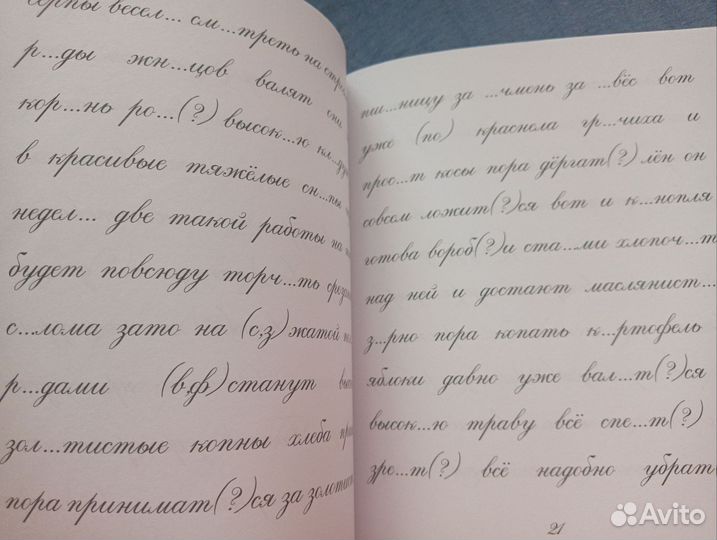 серпы весел... см...треть на
р...ды жн...цов валят они
кор...нь ро...(?) высок...ю
в красивые тяжёлые сн...пы
недел... две такой работы на
будет повсюду торч...ть
с...лома зато на (с,з)жатой
р...дами (в,ф)станут
зол...тистые копны хлеба
пора принимат(?)ся за
пш...ницу за ...чмень за ...вёс вот
уже (по) краснела гр...чиха и
прос...т косы пора дёргат(?) лён он
совсем ложит(?)ся вот и к...нопля
готова вороб(?)и ста...ми хлопоч...т
над ней и достают маслянист...
з...рно пора копать к...ртофель
яблоки давно уже вал...т(?)ся
высок...ю траву всё спе...т(?)
зре...т(?) всё надобно убрат
21
Avito